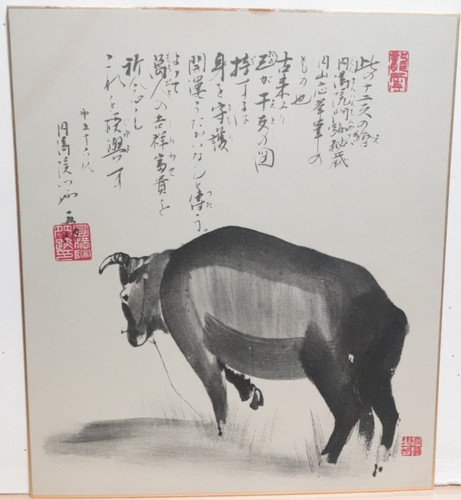 此の十二支の繪
円満院門跡秘蔵
円山応挙筆の
もの也
古来より
己が干支の図
持するは
身を守護
開運うたがいなしと傳う。
よって
萬人の吉祥富貴を
祈念し
これを頒與す
第五十六代
円満院門跡